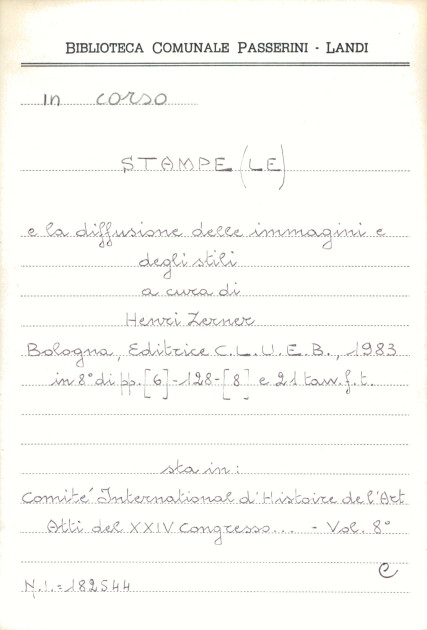 BIBLIOTECA COMUNALE PASSERINI - LANDI
in corso
STAMPE (LE)
e la diffusione delle immagini e
degli stili
a cura di
Henri Zerner
Bologna, Editrice C.L.U.E.B., 1983
in 8° di pp. [6]-128-[8] e 21 tav. f. t.
sta in:
Comité International d'Histoire de l'Art
Atti del XXIV Congresso... - Vol. 8°
e
N.I.=182544